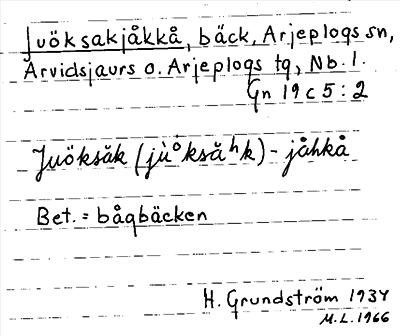 Juöksakjåkkå, bäck, Arjeplogs sn,
Arvidsjaurs o. Arjeplogs tg, Nb. l.
Gn 19 c 5 : 2
Juöksăk (jù°ksăʰk) - jåhkå
Bet. = bågbäcken
H. Grundström 1934
M.L. 1966